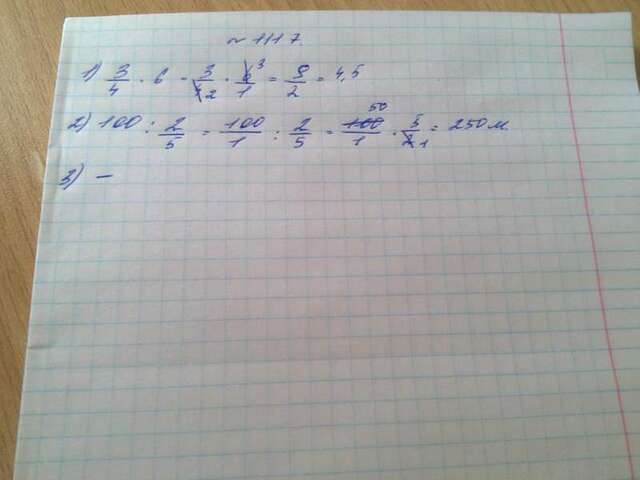 № 1117.
1) 3/4 · 6 = 3/4 2 · 6 3/1 = 9/2 = 4,5
2) 100 : 2/5 = 100/1 : 2/5 = 100 50/1 · 5/2 1 = 250 м
3) —